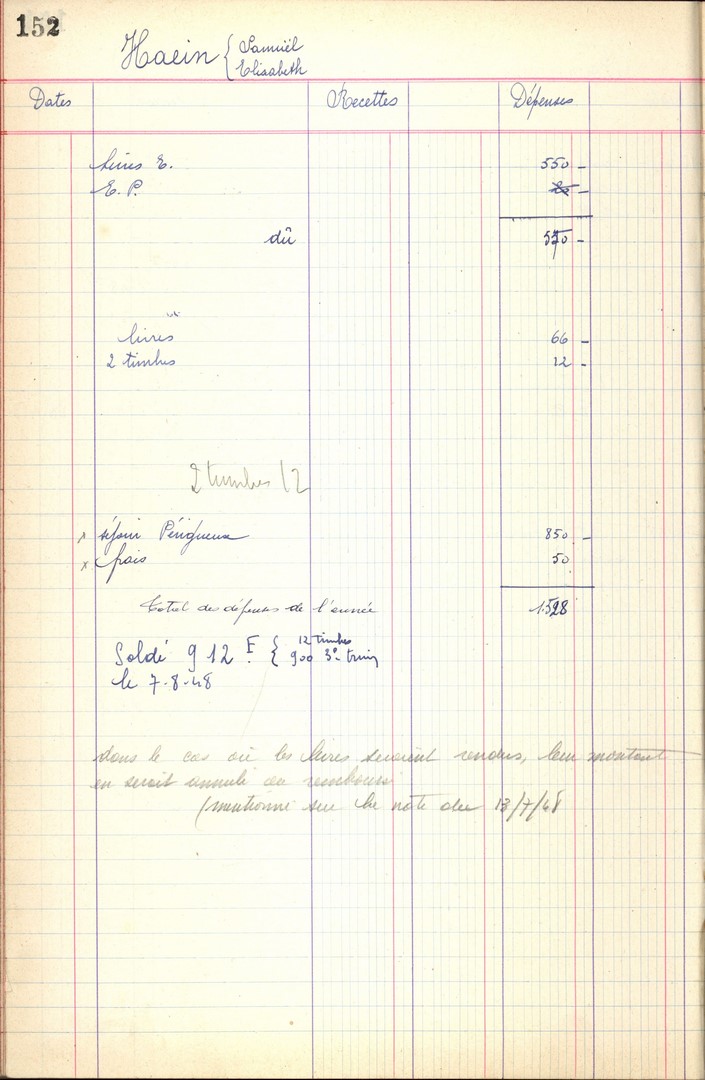 152
Haein { Samuël
Elisabeth
Dates Recettes Dépenses
livres E. 550 -
E. P. -
dû 550 -
livres 66 -
2 timbres 12 -
2 timbres 12
x séjour Périgueux 850 -
x frais 50
Total des dépenses de l'année 1.528
Soldé 912 F. { 12 timbres
900 3e trim
le 7-8-48
dans le cas où les livres seraient rendus, leur montant
en serait annulé ou remboursé
(mentionné sur la note du 13/7/48